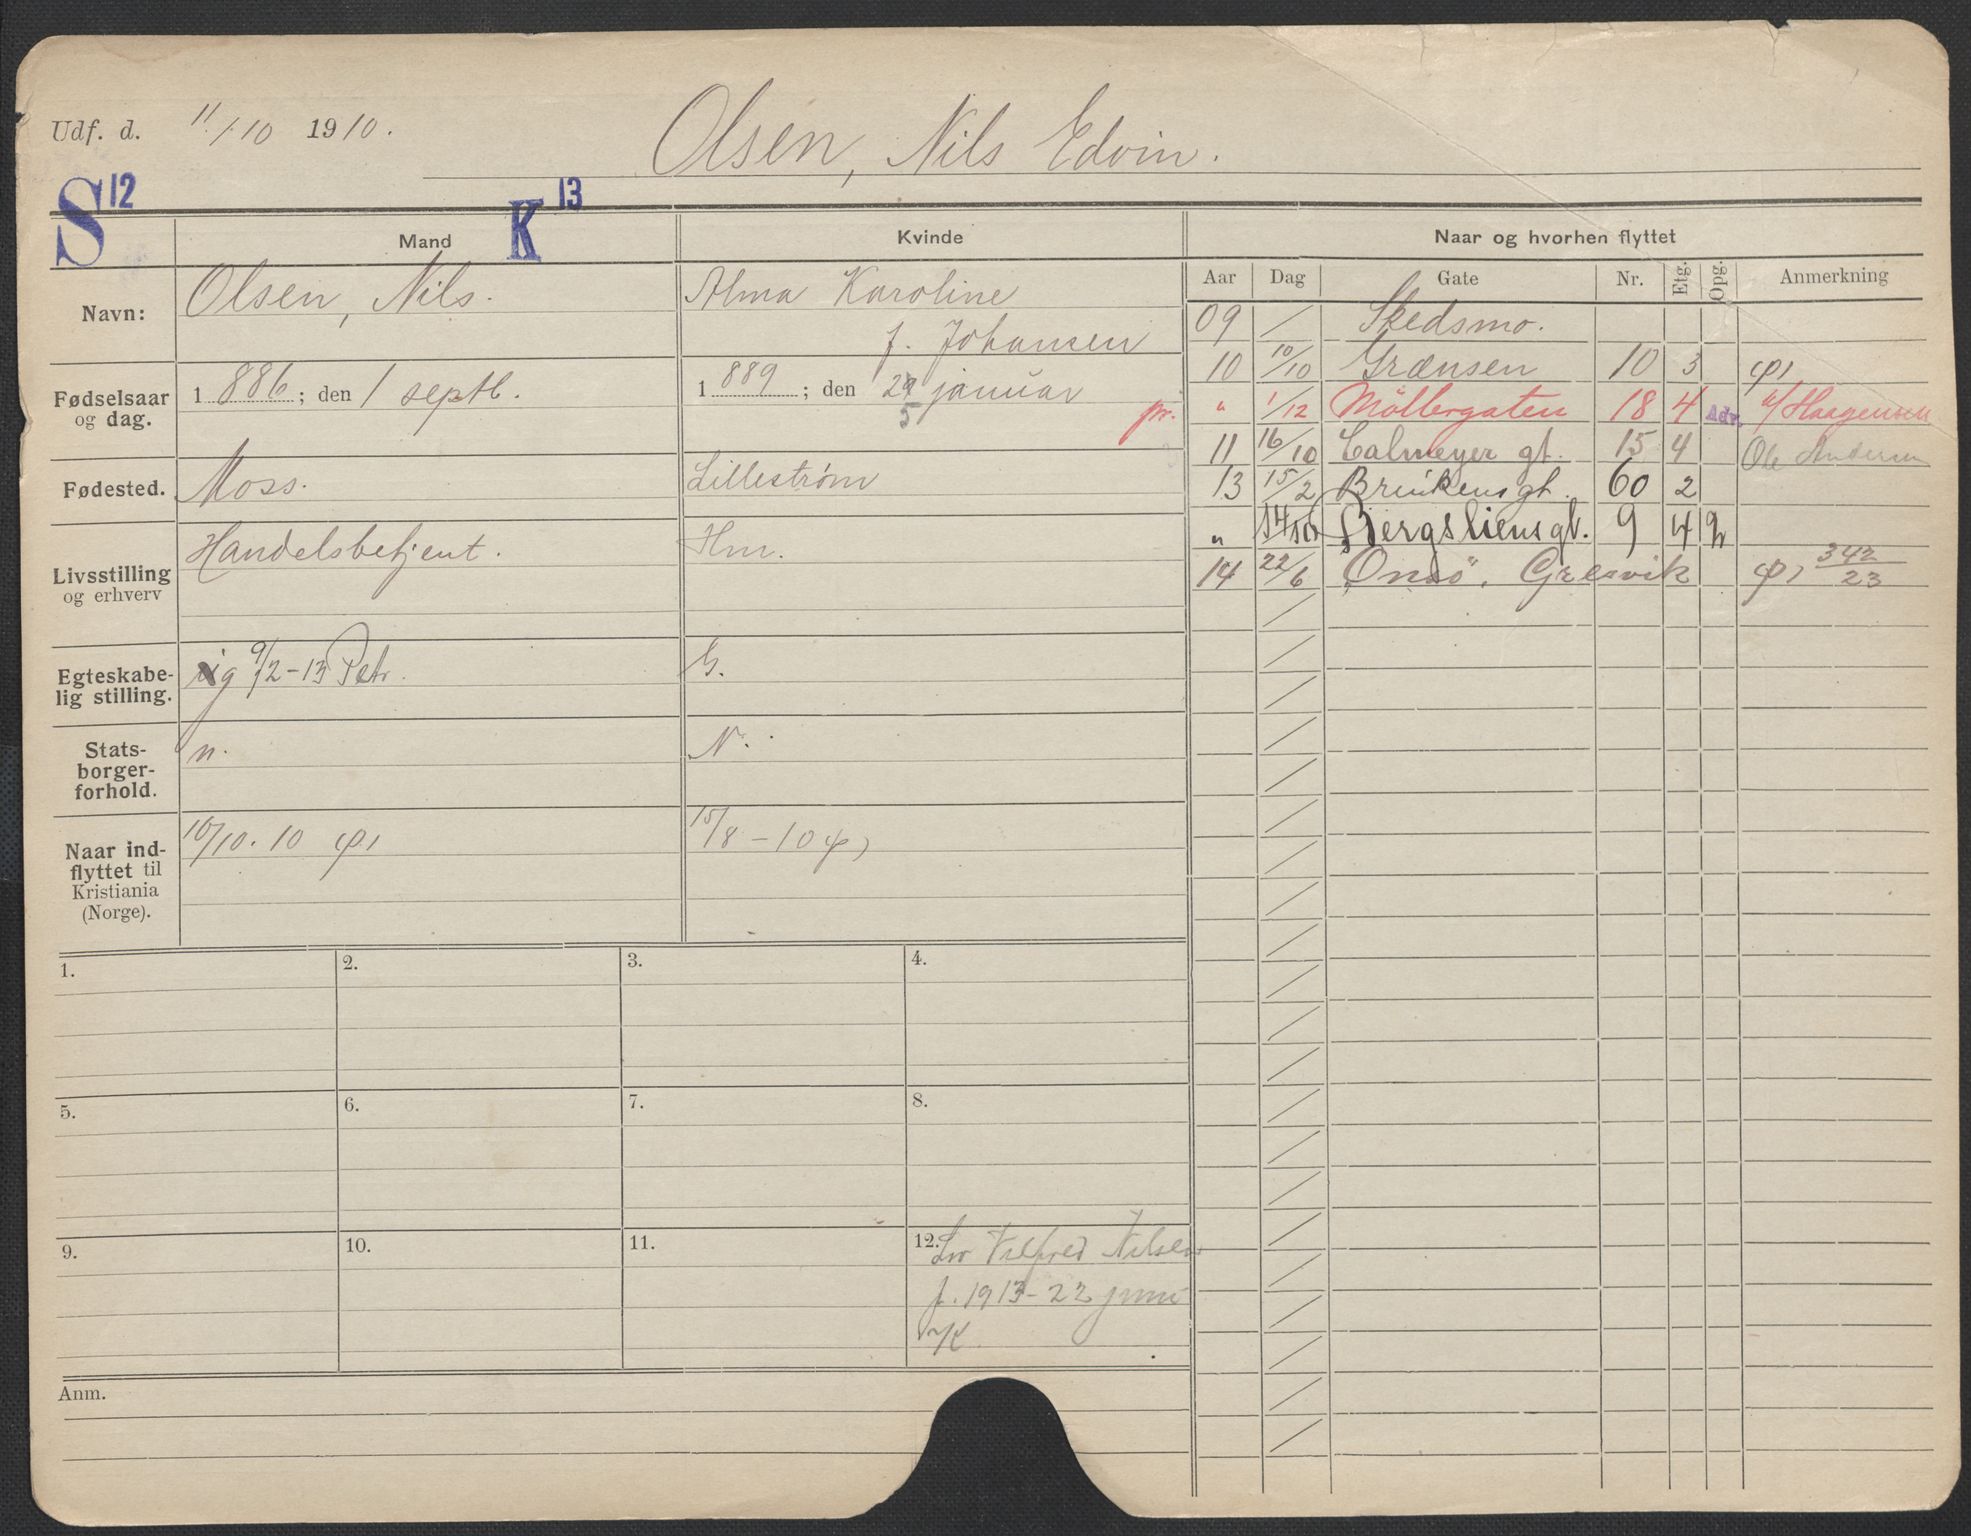 Udf. d. 11/10 1910.
Olsen, Nils Edvin.
S 12
K 13
Mand
Kvinde
Naar og hvorhen flyttet
Navn:
Olsen, Nils.
Alma Karoline
f. Johansen
Fødselsaar og dag.
1 886 ; den 1 septb.
1 889 ; den 29 januar
5
pr.
Fødested.
Moss.
Lillestrøm
Livsstilling og erhverv
Handelsbetjent.
Hm.
Egteskabelig stilling.
g 9/2-13 Petr.
G.
Statsborgerforhold.
n.
N.
Naar indflyttet til Kristiania (Norge).
10/10. 10
15/8-10
Aar Dag Gate Nr. Etg. Opg. Anmerkning
09 / Skedsmo.
10 10/10 Grænsen 10 3
" 1/12 Möllergaten 18 4 Adr. Haagensen
11 16/10 Calmeyer gt. 15 4 Ole Andersen
13 15/2 Brinkens gt. 60 2
" 14/10 Bergsliensgt. 9 4
14 22/6 Onsö, Gresvik 342/23
1.
2.
3.
4.
5.
6.
7.
8.
9.
10.
11.
12. Nilsen
f. 1913-22 juni
Anm.